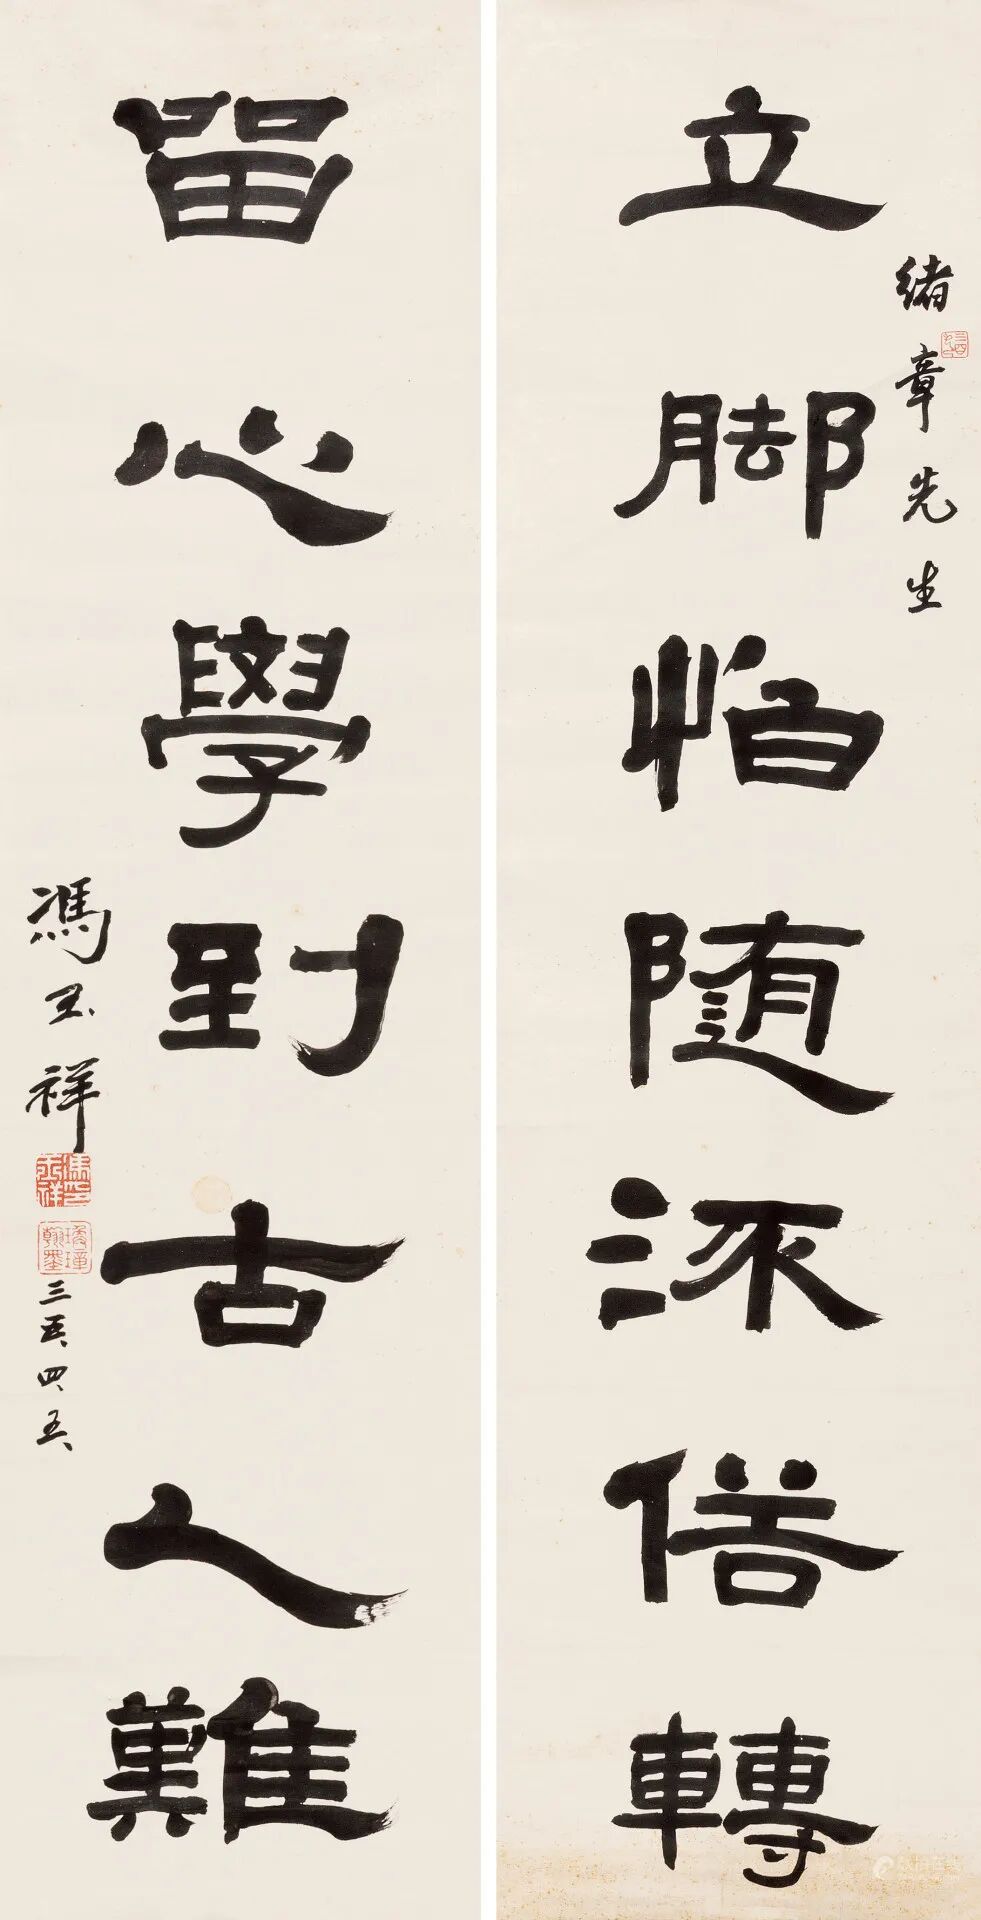 緒章先生
立脚怕随流俗轉
留心學到古人難
馮玉祥
馮玉祥印
三五、四、五、